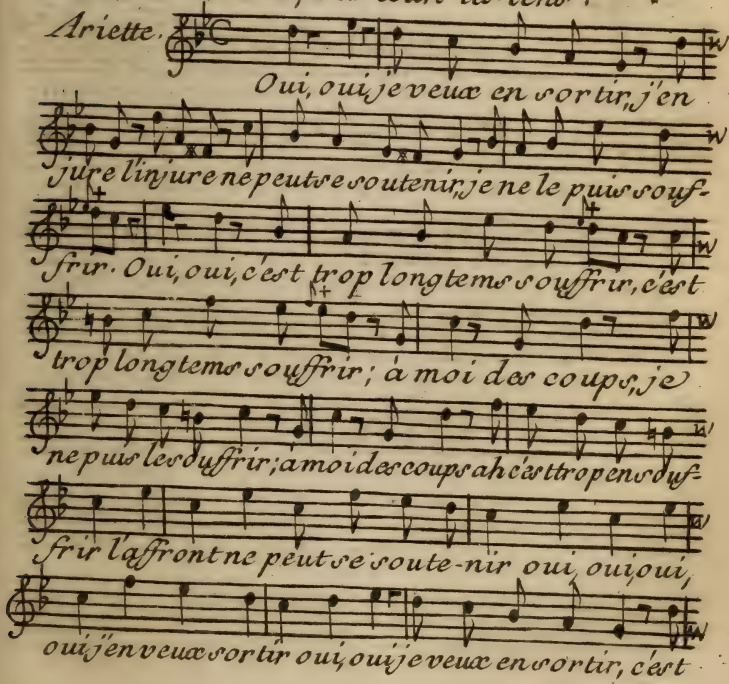 Ariette.
Oui, oui, je veux en sortir, j'en
jure l'injure ne peut se soutenir, je ne le puis souf-
frir. Oui, oui, c'est trop longtems souffrir, c'est
trop longtems souffrir; à moi des coups, je
ne puis le souffrir; à moi des coups ah c'est trop en souf-
frir l'affront ne peut se soute-nir oui, oui, oui,
oui j'en veux sortir oui, oui je veux en sortir, c'est